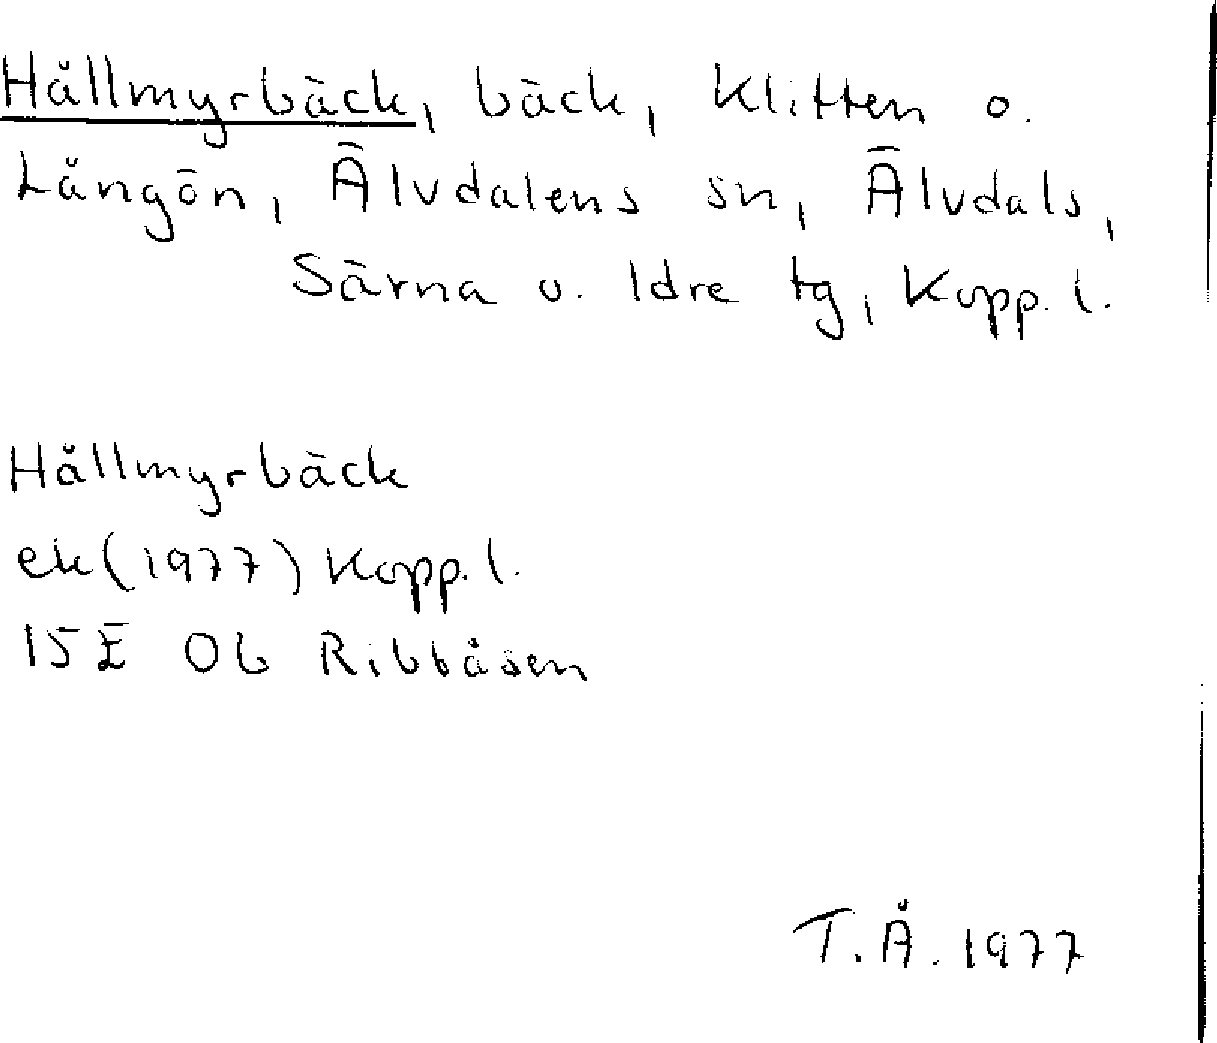 Hållmyrbäck, bäck, Klitten o.
Långön, Älvdalens sn, Älvdals,
Särna o. Idre tg, Kopp. l.
Hållmyrbäck
ek (1977) Kopp. l.
15E 0b Ribbåsen
T.Å. 1977